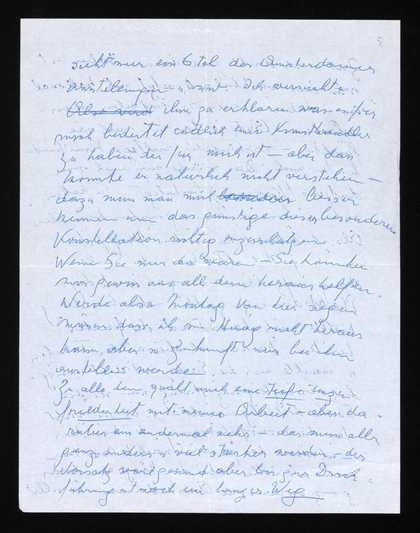 nicht nur ein 6tel der Amsterdamer
Ausstellung
ihm zu erklären was es für
mich bedeutet endlich einen Kunsthändler
zu haben der für mich ist – aber das
konnte er natürlich nicht verstehen –
dazu muss man mich besser
kennen um das günstige dieser besonderen
Konstellation richtig
Wenn Sie nur da wären – Sie könnten
mir gewiss aus all dem heraus helfen.
Werde also Montag von hier
müssen dass ich im Haag nicht heraus
kann, aber in Zukunft nur bei ihm
ausstellen werde.
Zu alle dem quält mich eine tiefe Unzu-
friedenheit mit meiner Arbeit – aber da-
rüber ein andermal mehr – das muss alles
ganz anders u. viel stärker werden – der
Vorsatz wär gesund aber bis zur Durch-
führung ist noch ein langer Weg